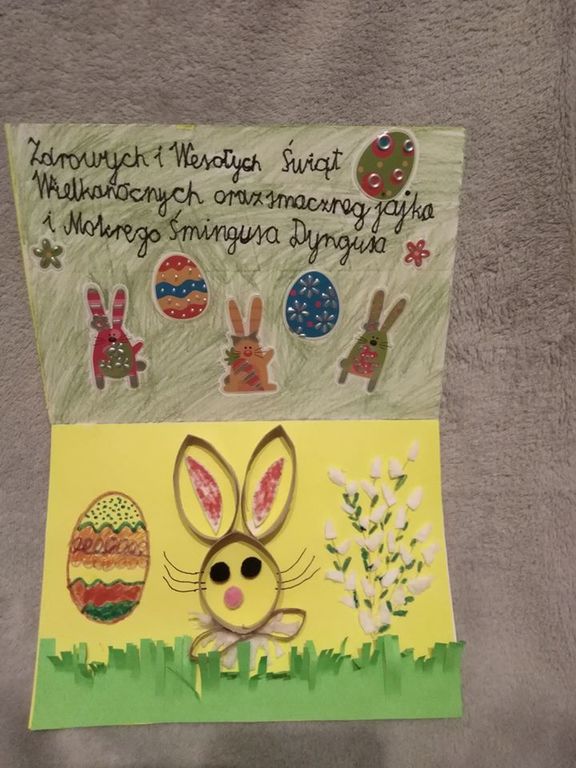 Zdrowych i Wesołych Świąt
Wielkanocnych oraz smaczneg jajka
i Mokrego Śmingusa Dyngusa